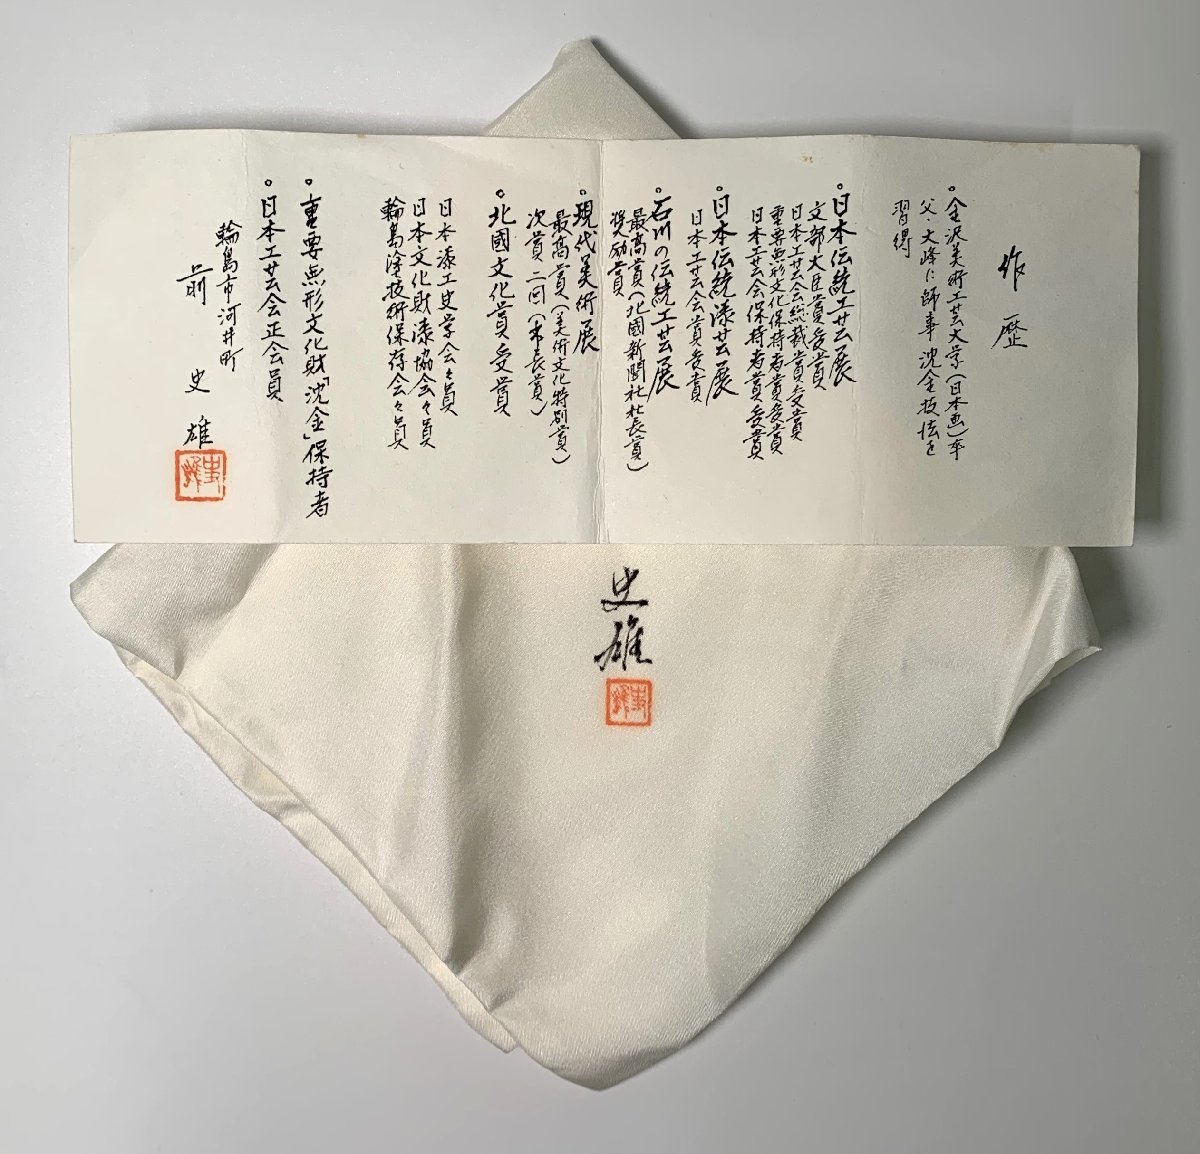 作歴
。金沢美術工芸大学(日本画)卒
父・大峰に師事 沈金技法を
習得
。日本伝統工芸展
文部大臣賞受賞
日本工芸会総裁賞受賞
重要無形文化保持者賞受賞
日本工芸会保持者賞受賞
。日本伝統漆芸展
日本工芸会賞受賞
。石川の伝統工芸展
最高賞(北國新聞社社長賞)
奨励賞
。現代美術展
最高賞(美術文化特別賞)
次賞二回(市長賞)
。北國文化賞受賞
日本漆工史学会々員
日本文化財漆協会々員
輪島塗技術保存会々員
。重要無形文化財「沈金」保持者
。日本工芸会正会員
輪島市河井町
前史雄
史雄